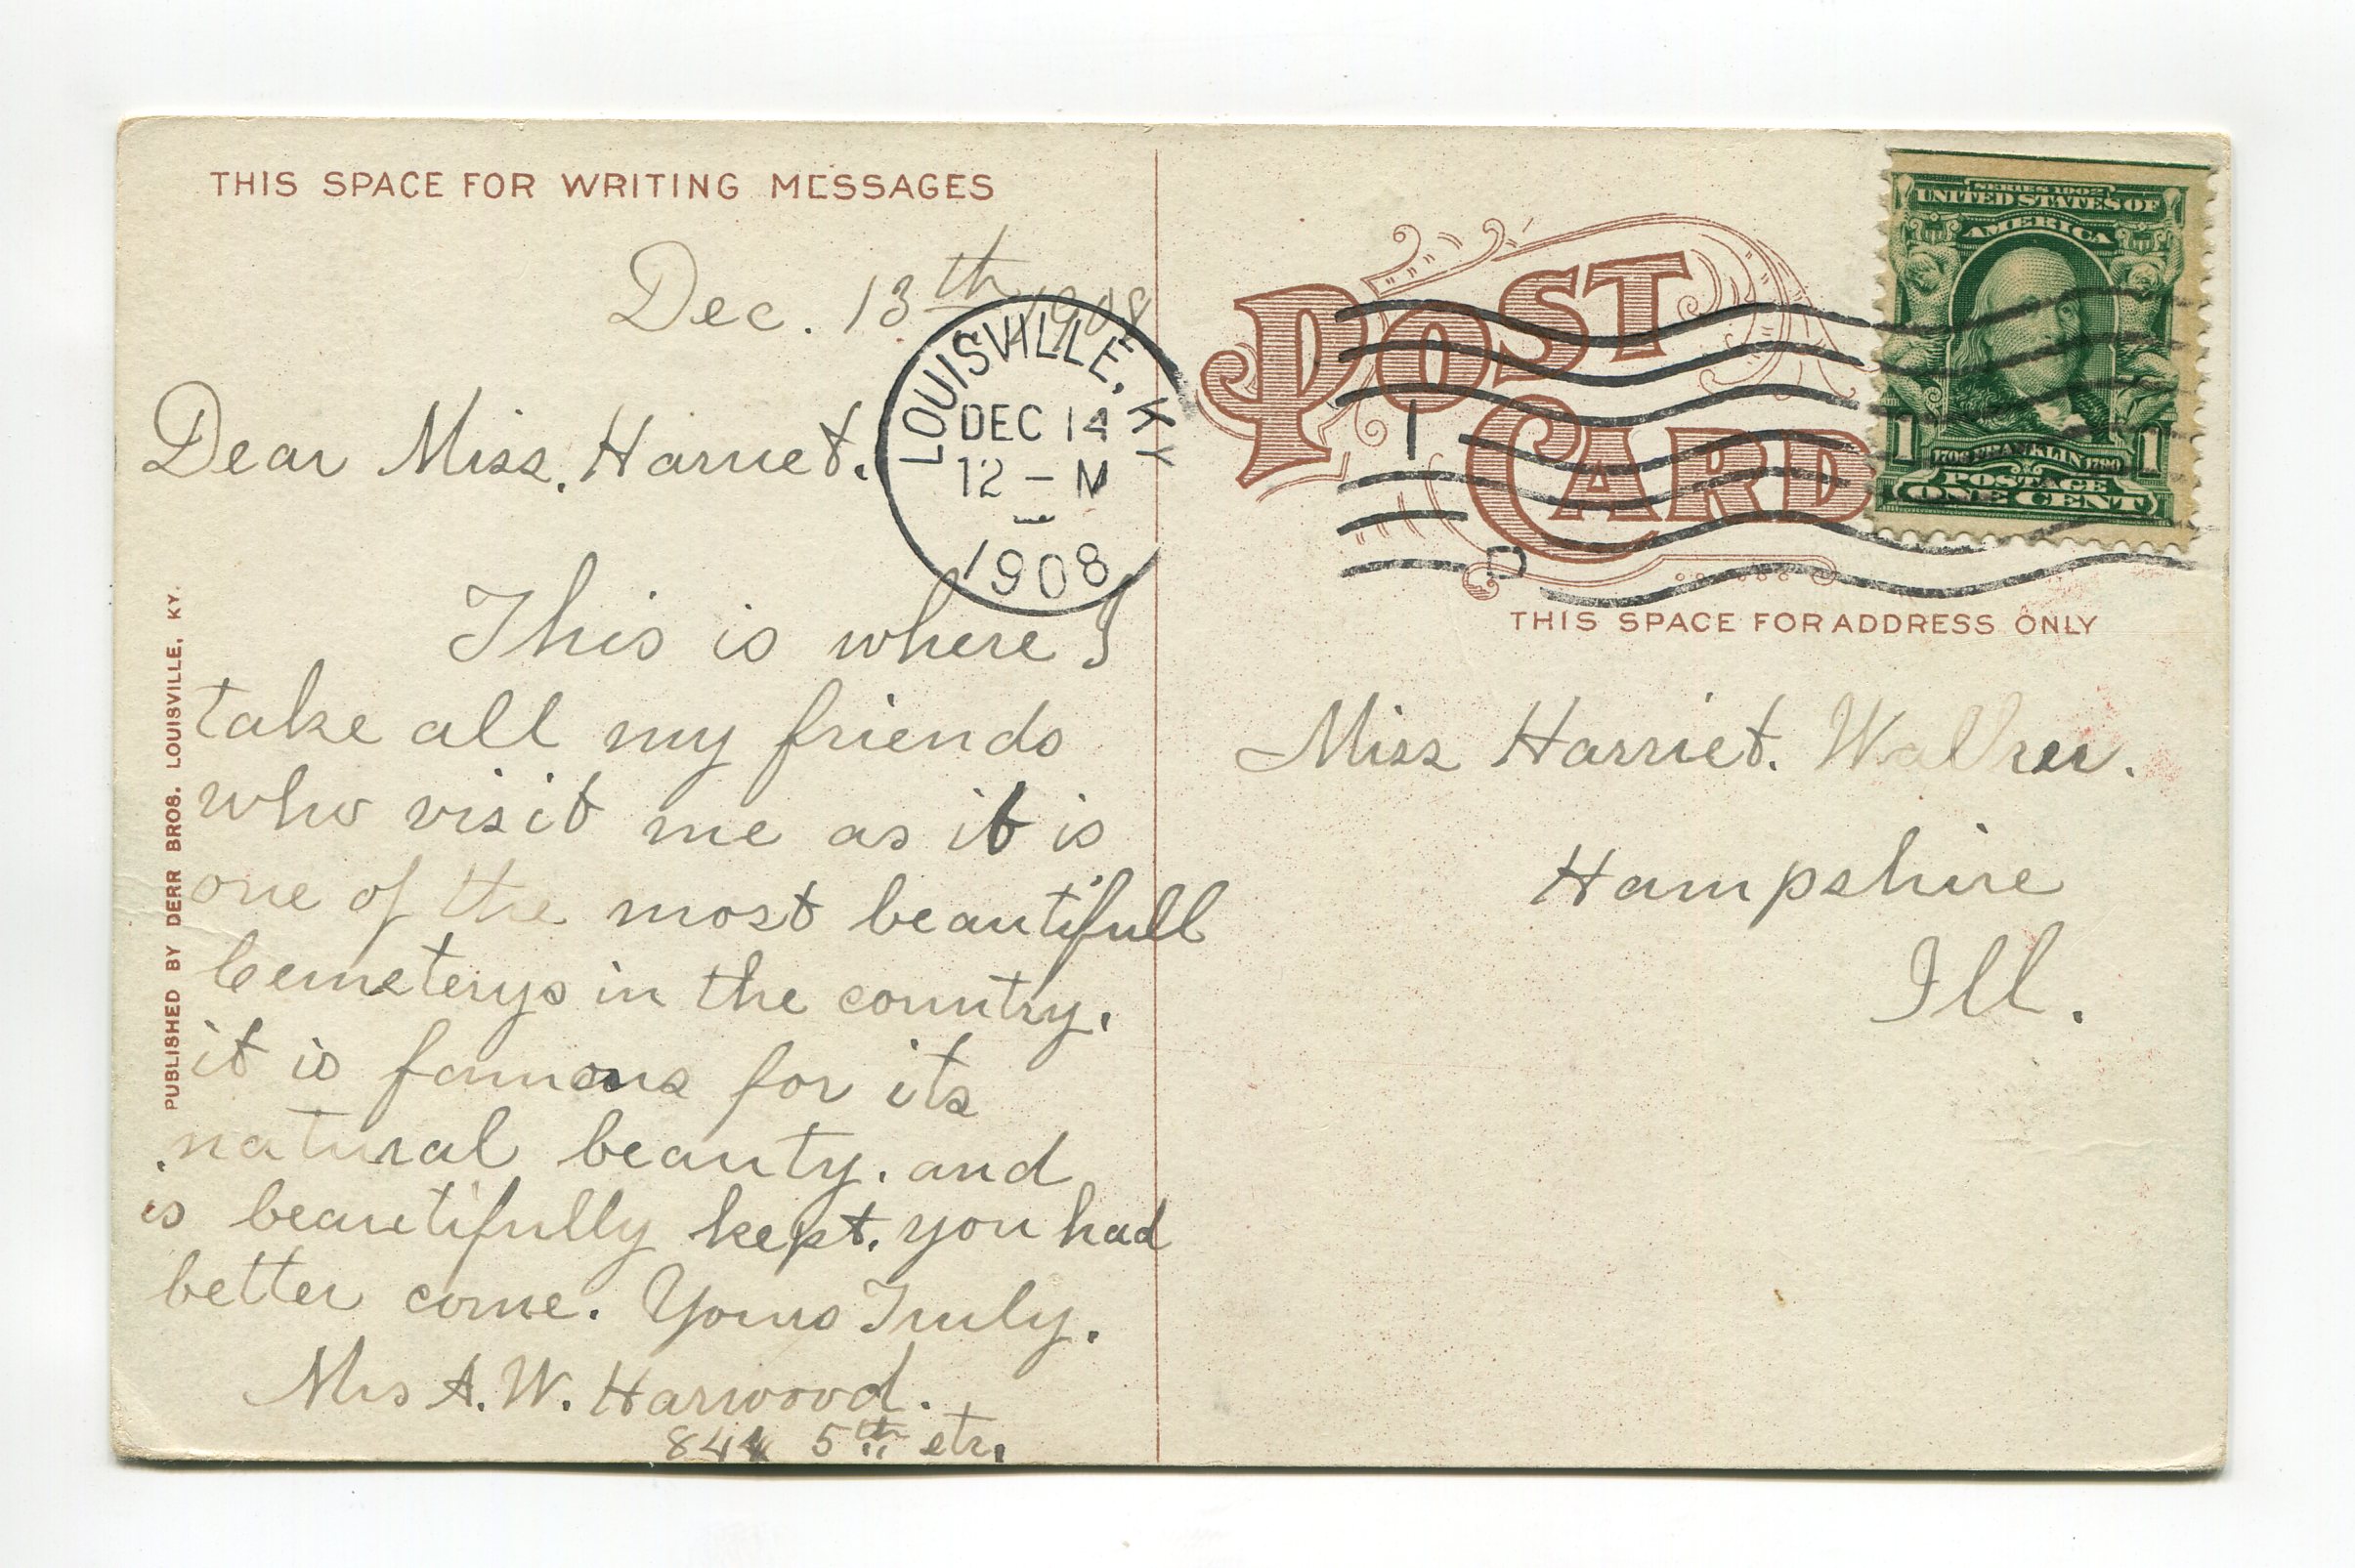 THIS SPACE FOR WRITING MESSAGES
Dec. 13th 1908
Dear Miss. Harriet.
This is where I
take all my friends
who visit me as it is
one of the most beautifull
Cemeterys in the country.
it is famous for its
natural beauty. and
is beautifully kept. you had
better come. Yours Truly.
Mrs A. W. Harwood.
844 5th str.
PUBLISHED BY DERR BROS. LOUISVILLE, KY.
LOUISVILLE, KY
DEC 14
12 - M
1908
POST
CARD
1
D
SERIES 1902
UNITED STATES OF
AMERICA
1 1706 FRANKLIN 1790 1
POSTAGE
ONE CENT
THIS SPACE FOR ADDRESS ONLY
Miss Harriet. Walker.
Hampshire
Ill.